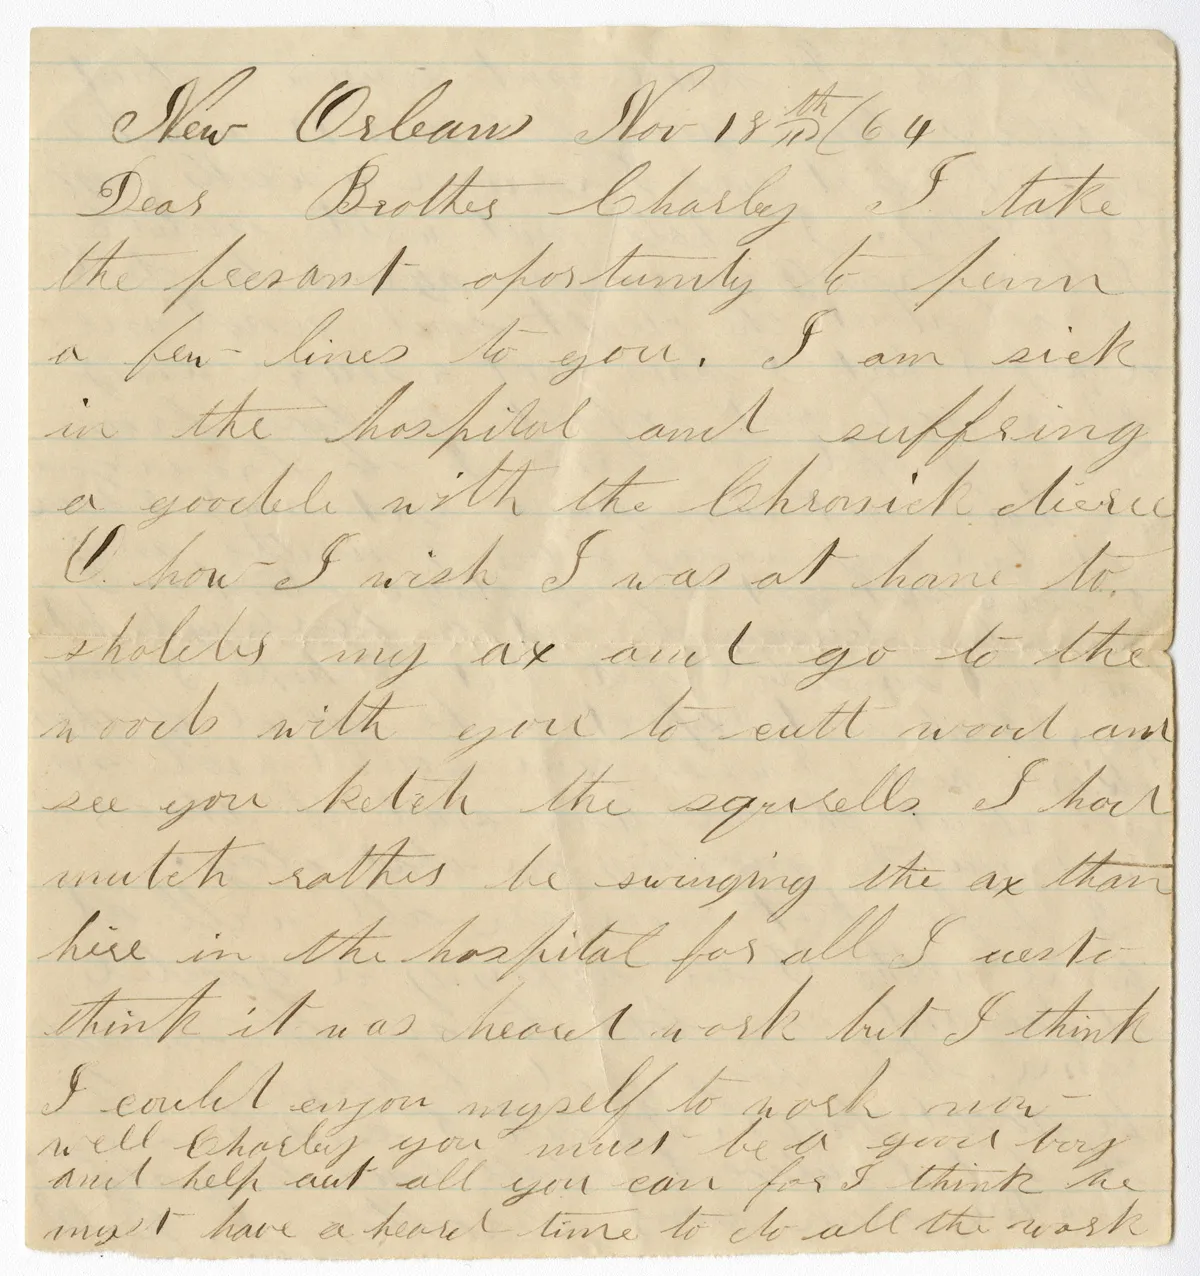 New Orleans Nov 18th /64
Dear Brother Charley I take
the presant oportunity to penn
a few lines to you. I am sick
in the hospital and suffring
a goodele with the Chronick
O. how I wish I was at home to
sholder my ax and go to the
woods with you to cutt wood and
see you ketch the squrells. I had
mutch rather be swinging the ax than
here in the hospital for all I uesto
think it was heard work but I think
I could enjou myself to work now
well Charley you must be a good boy
and help out all you can for I think he
must have a heard time to do all the work